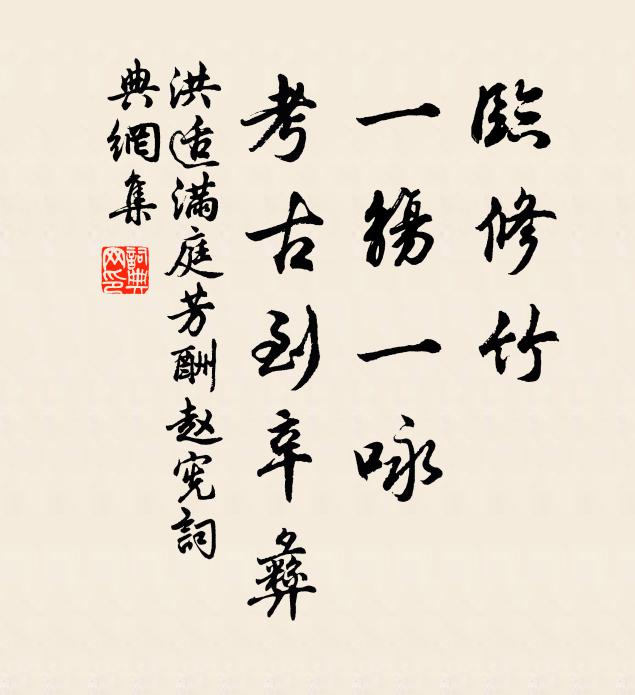 臨修竹
一觴一咏
考古到辛彝
洪适滿庭芳酬赵宪詞
典網集
詞典
网印